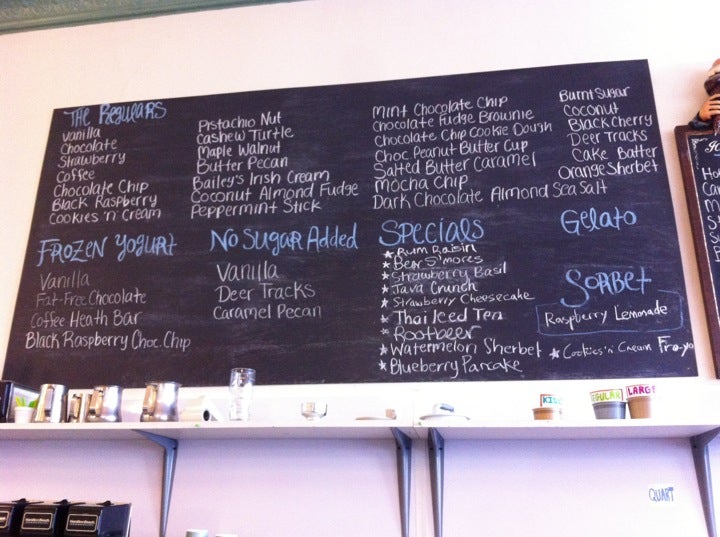 THE REGULARS
Vanilla
Chocolate
Strawberry
Coffee
Chocolate Chip
Black Raspberry
Cookies 'n' Cream
Pistachio Nut
Cashew Turtle
Maple Walnut
Butter Pecan
Bailey's Irish Cream
Coconut Almond Fudge
Peppermint Stick
Mint Chocolate Chip
Chocolate Fudge Brownie
Chocolate Chip Cookie Dough
Choc Peanut Butter Cup
Salted Butter Caramel
Mocha Chip
Dark Chocolate Almond Sea Salt
Burnt Sugar
Coconut
Black Cherry
Deer Tracks
Cake Batter
Orange Sherbet
FROZEN YOGURT
Vanilla
Fat-Free Chocolate
Coffee Heath Bar
Black Raspberry Choc. Chip
NO SUGAR Added
Vanilla
Deer Tracks
Caramel Pecan
SPECIALS
Rum Raisin
Bear S'mores
Strawberry Basil
Java Crunch
Strawberry Cheesecake
Thai Iced Tea
Rootbeer
Watermelon Sherbet
Blueberry Pancake
Gelato
SORBET
Raspberry Lemonade
Cookies 'n' Cream Fro-yo
REGULAR
LARGE
QUART